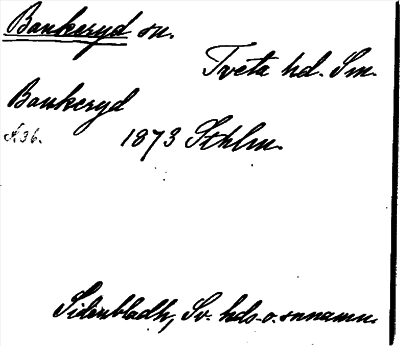 Bankeryd sn.
Tveta hd. Sm.
Bankeryd
1873 Sthlm.
Sidenbladh, Sv. hds- o. snnamn.